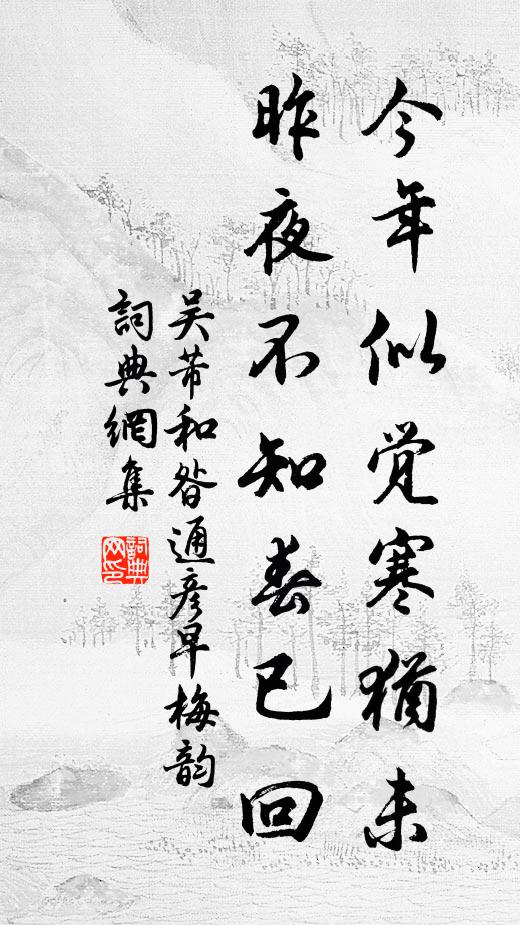 今年似觉寒犹未
昨夜不知春已回
吴芾和昝通彦早梅韵
詞典網集
詞典网印